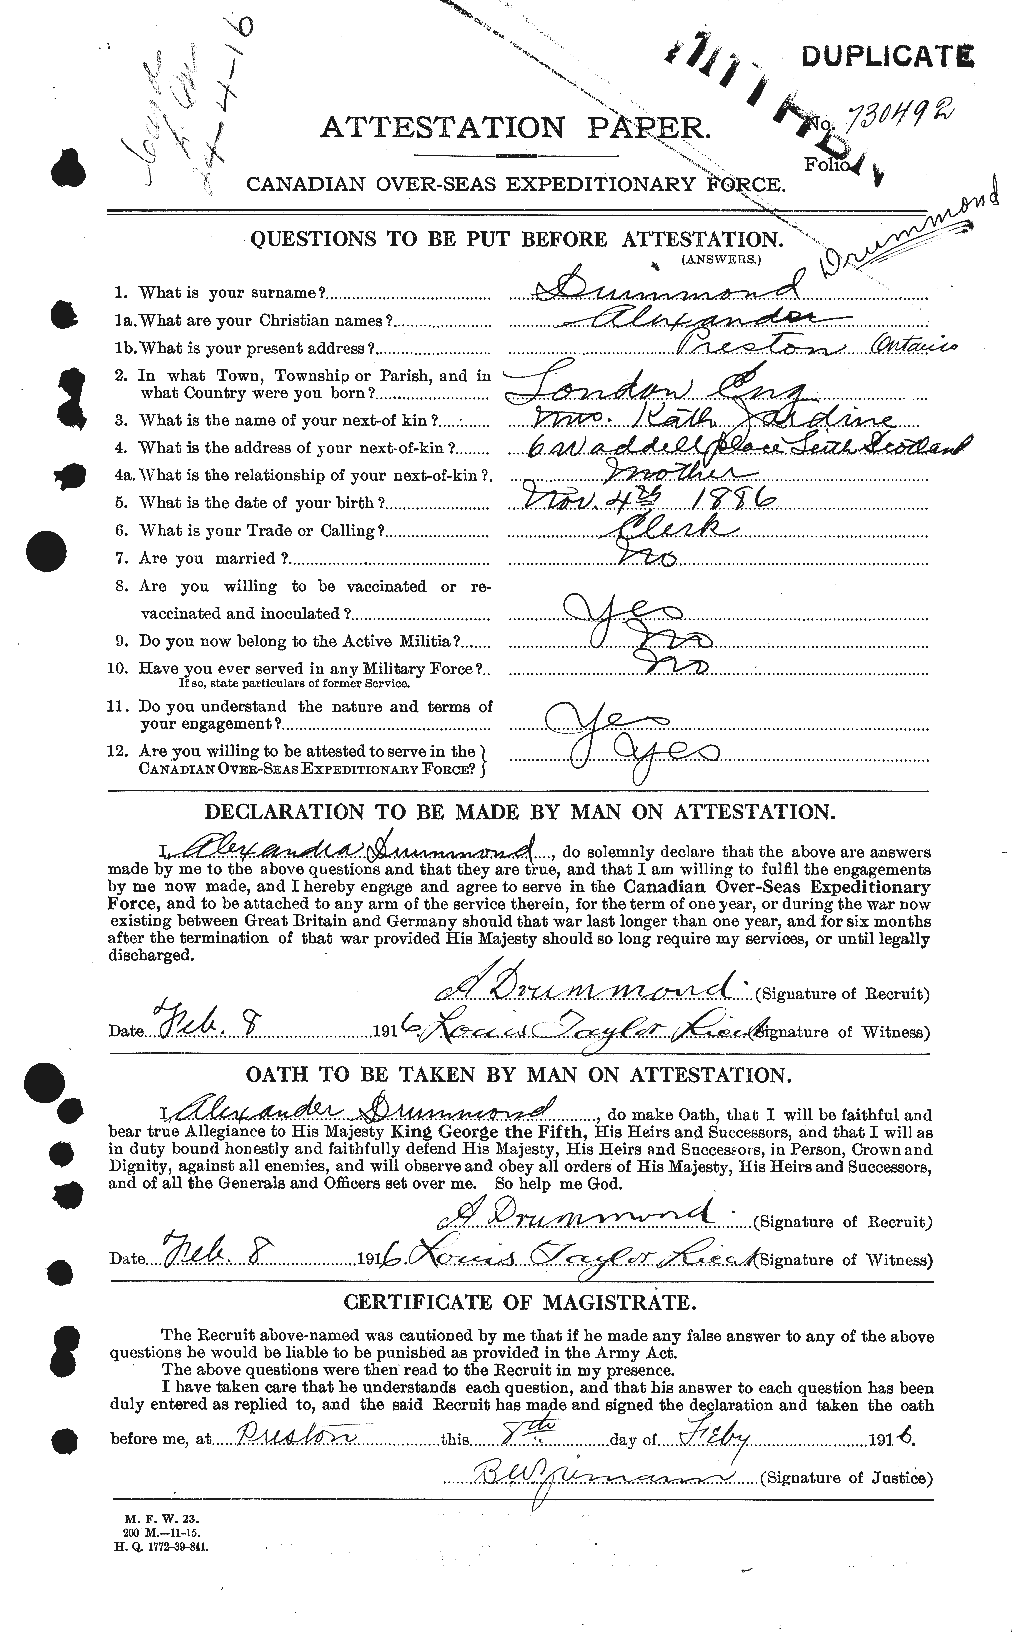 24-4-16
DUPLICATE
No. 730492
ATTESTATION PAPER.
Folio
CANADIAN OVER-SEAS EXPEDITIONARY FORCE.
Drummond
QUESTIONS TO BE PUT BEFORE ATTESTATION.
(ANSWERS.)
1. What is your surname? Drummond
1a. What are your Christian names? Alexander
1b. What is your present address? Preston Ontario
2. In what Town, Township or Parish, and in
what Country were you born? London Eng
3. What is the name of your next-of kin? Mrs. Kath Jardine
4. What is the address of your next-of-kin? 6 Waddell place Leith Scotland
4a. What is the relationship of your next-of-kin? Mother
5. What is the date of your birth? Nov. 4th 1886
6. What is your Trade or Calling? Clerk
7. Are you married? No
8. Are you willing to be vaccinated or re-
vaccinated and inoculated? Yes
9. Do you now belong to the Active Militia? No
10. Have you ever served in any Military Force? No
If so, state particulars of former Service.
11. Do you understand the nature and terms of
your engagement? Yes
12. Are you willing to be attested to serve in the
CANADIAN OVER-SEAS EXPEDITIONARY FORCE? Yes
DECLARATION TO BE MADE BY MAN ON ATTESTATION.
I, Alexander Drummond, do solemnly declare that the above are answers
made by me to the above questions and that they are true, and that I am willing to fulfil the engagements
by me now made, and I hereby engage and agree to serve in the Canadian Over-Seas Expeditionary
Force, and to be attached to any arm of the service therein, for the term of one year, or during the war now
existing between Great Britain and Germany should that war last longer than one year, and for six months
after the termination of that war provided His Majesty should so long require my services, or until legally
discharged.
A Drummond (Signature of Recruit)
Date Feb. 8 1916 Louis Taylor (Signature of Witness)
OATH TO BE TAKEN BY MAN ON ATTESTATION.
I, Alexander Drummond, do make Oath, that I will be faithful and
bear true Allegiance to His Majesty King George the Fifth, His Heirs and Successors, and that I will as
in duty bound honestly and faithfully defend His Majesty, His Heirs and Successors, in Person, Crown and
Dignity, against all enemies, and will observe and obey all orders of His Majesty, His Heirs and Successors,
and of all the Generals and Officers set over me. So help me God.
A Drummond (Signature of Recruit)
Date Feb. 8 1916 Louis Taylor (Signature of Witness)
CERTIFICATE OF MAGISTRATE.
The Recruit above-named was cautioned by me that if he made any false answer to any of the above
questions he would be liable to be punished as provided in the Army Act.
The above questions were then read to the Recruit in my presence.
I have taken care that he understands each question, and that his answer to each question has been
duly entered as replied to, and the said Recruit has made and signed the declaration and taken the oath
before me, at Preston this 8th day of Feby 1916.
(Signature of Justice)
M. F. W. 23.
200 M.—11-15.
H. Q. 1772-39-841.